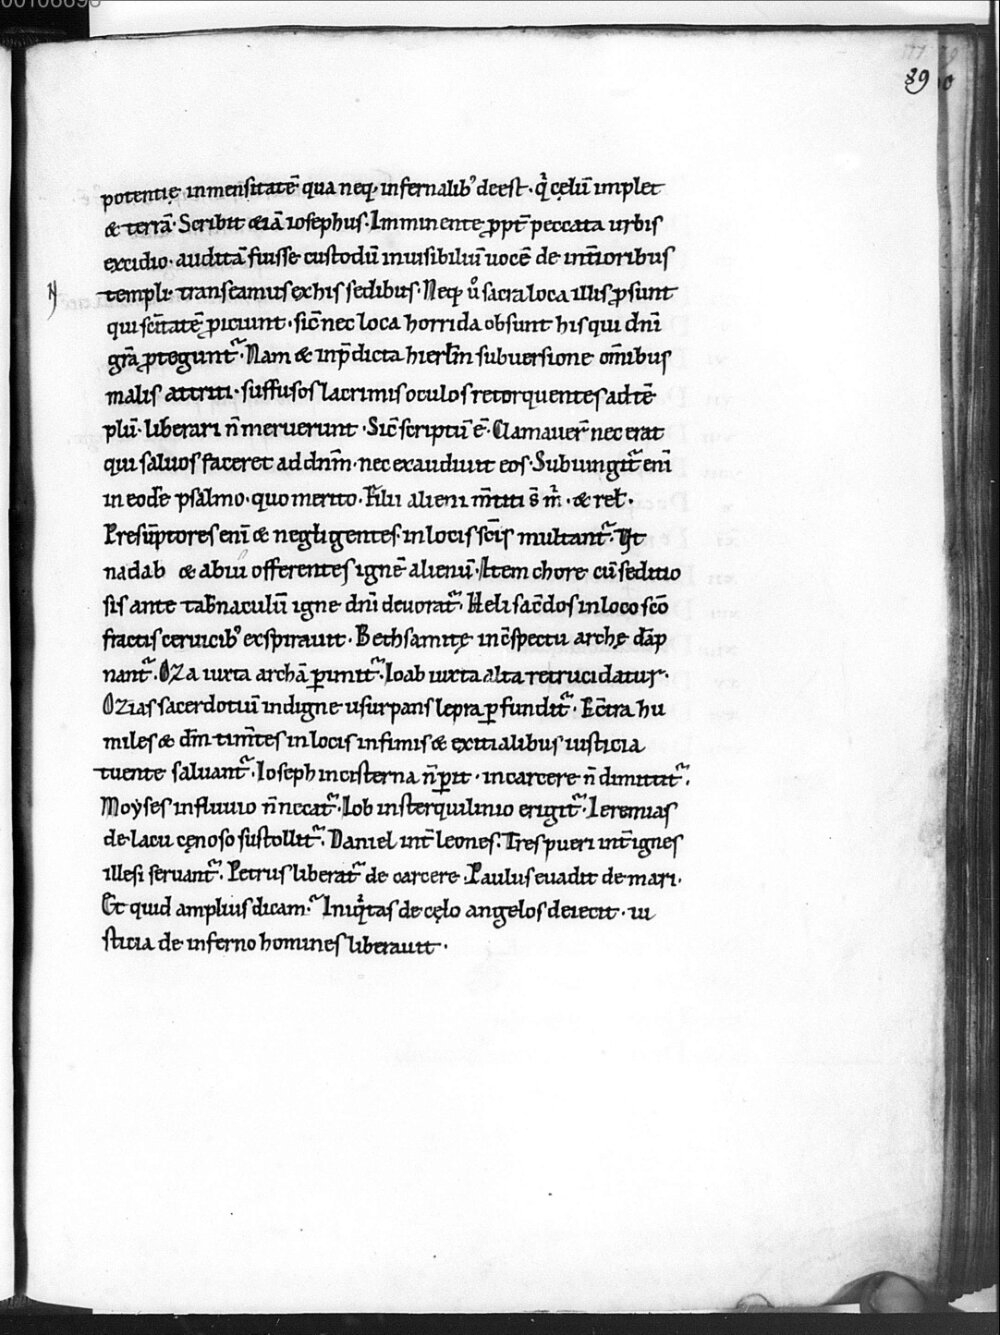 00106698
89
potentię inmensitatē qua neq; infernalibꝰ deest · q̇ cęlū implet
& terrā · Scribit &iā iosephus · Imminente ꝓpt̄ peccata urbis
excidio · auditā fuisse custodū inuisibiliū uocē de int̄ioribus
templi · transeamus ex his sedibus · Neq; u̾ sacra loca illis ꝓsunt
qui sc̄itatē ꝓiciunt · sic̄ nec loca horrida obsunt his qui dn̄i
gr̄a ꝓtegunt᷑ · Nam & in p̄dicta hierl̄m subuersione om̄ibus
malis attriti · suffusos lacrimis oculos retorquentes ad tē
plū · liberari n̄ meruerunt · Sic̄ scriptū ē · Clamauer̄ nec erat
qui saluos faceret ad dn̄m · nec exaudiuit eos · Subiungit᷑ eni̅
in eodē psalmo · quo merito · Filii alieni m̄titi s̄ m̓ · & rel̄ ·
Presūptores eni̅ & negligentes in locis sc̄is multant᷑ · Vt
nadab & abiu offerentes ignē alienū · Item chore cū seditio
sis ante tab̄naculū igne dn̄i deuorat᷑ · Heli sac̄dos in loco sc̄o
fractis ceruicibꝰ exspirauit · Bethsamitę in c̄spectu arche dāp
nant᷑ · Oza iuxta archā ꝑimit᷑ · Ioab iuxta alta retrucidatur ·
Ozias sacerdotiū indigne usurpans lepra ꝑfundit᷑ · Ec̄tra hu
miles & dm̄ tim̄tes in locis infimis & exitialibus iusticia
tuente saluant᷑ · Ioseph in cisterna n̄ ꝑit · in carcere n̄ dimittit᷑ ·
Moẏses in fluuio n̄ necat᷑ · Iob in sterquilinio erigit᷑ · Ieremias
de lacu cęnoso sustollit᷑ · Daniel int̄ leones · Tres pueri int̄ ignes
illesi seruant᷑ · Petrus liberat᷑ de carcere · Paulus euadit de mari ·
Et quid amplius dicam · Iniq̇tas de cęlo angelos deiecit · iu
sticia de inferno homines liberauit ·